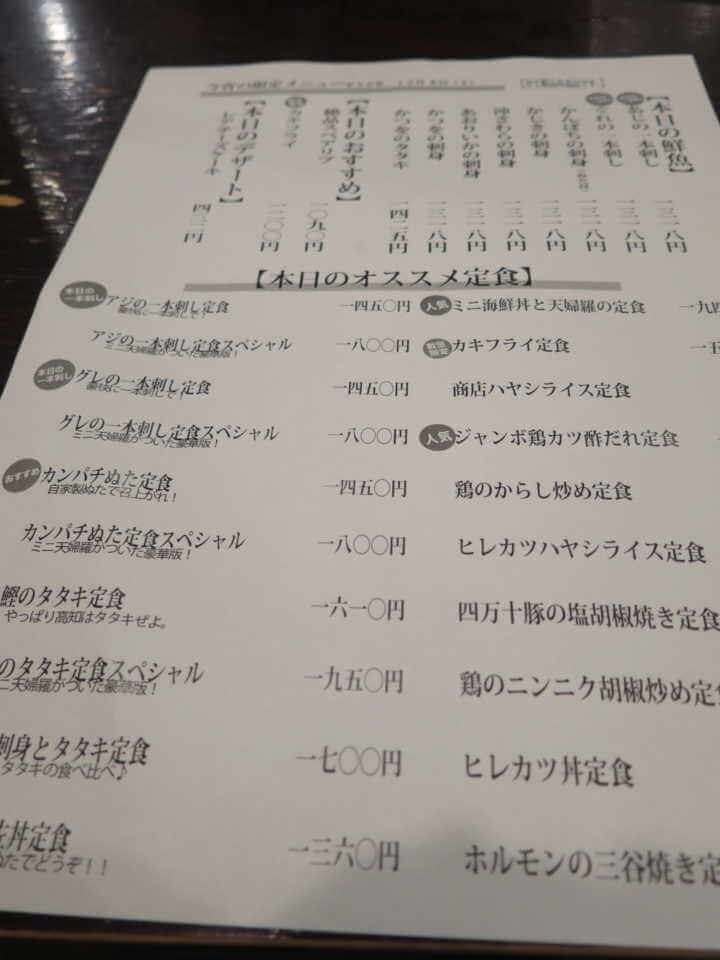 今宵の限定メニュー
【本日の鮮魚】
あじの一本刺し 一三一八円
ぐれの一本刺し 一三一八円
かんぱちの刺身 一三一八円
かじきの刺身 一三一八円
沖さわらの刺身 一三一八円
あおりいかの刺身 一三一八円
かつをの刺身 一三一八円
かつをのタタキ 一四二五円
【本日のおすすめ】
絶品スペアリブ 一〇九〇円
カキフライ 一一〇〇円
【本日のデザート】
レアチーズケーキ 四三一円
【本日のオススメ定食】
本日の一本刺し
アジの一本刺し定食 一四五〇円
アジの一本刺し定食スペシャル 一八〇〇円
ミニ天婦羅がついた豪華版!
本日の一本刺し
グレの一本刺し定食 一四五〇円
グレの一本刺し定食スペシャル 一八〇〇円
ミニ天婦羅がついた豪華版!
おすすめ
カンパチぬた定食 一四五〇円
自家製ぬたで召上がれ!
カンパチぬた定食スペシャル 一八〇〇円
ミニ天婦羅がついた豪華版!
鰹のタタキ定食 一六一〇円
やっぱり高知はタタキぜよ。
のタタキ定食スペシャル 一九五〇円
ニ天婦羅がついた豪華版!
刺身とタタキ定食 一七〇〇円
タタキの食べ比べ♪
丼定食 一三六〇円
ぬたでどうぞ!!
人気 ミニ海鮮丼と天婦羅の定食 一九
数量限定 カキフライ定食 一五
商店ハヤシライス定食
人気 ジャンボ鶏カツ酢だれ定食
鶏のからし炒め定食
ヒレカツハヤシライス定食
四万十豚の塩胡椒焼き定食
鶏のニンニク胡椒炒め定食
ヒレカツ丼定食
ホルモンの三谷焼き定